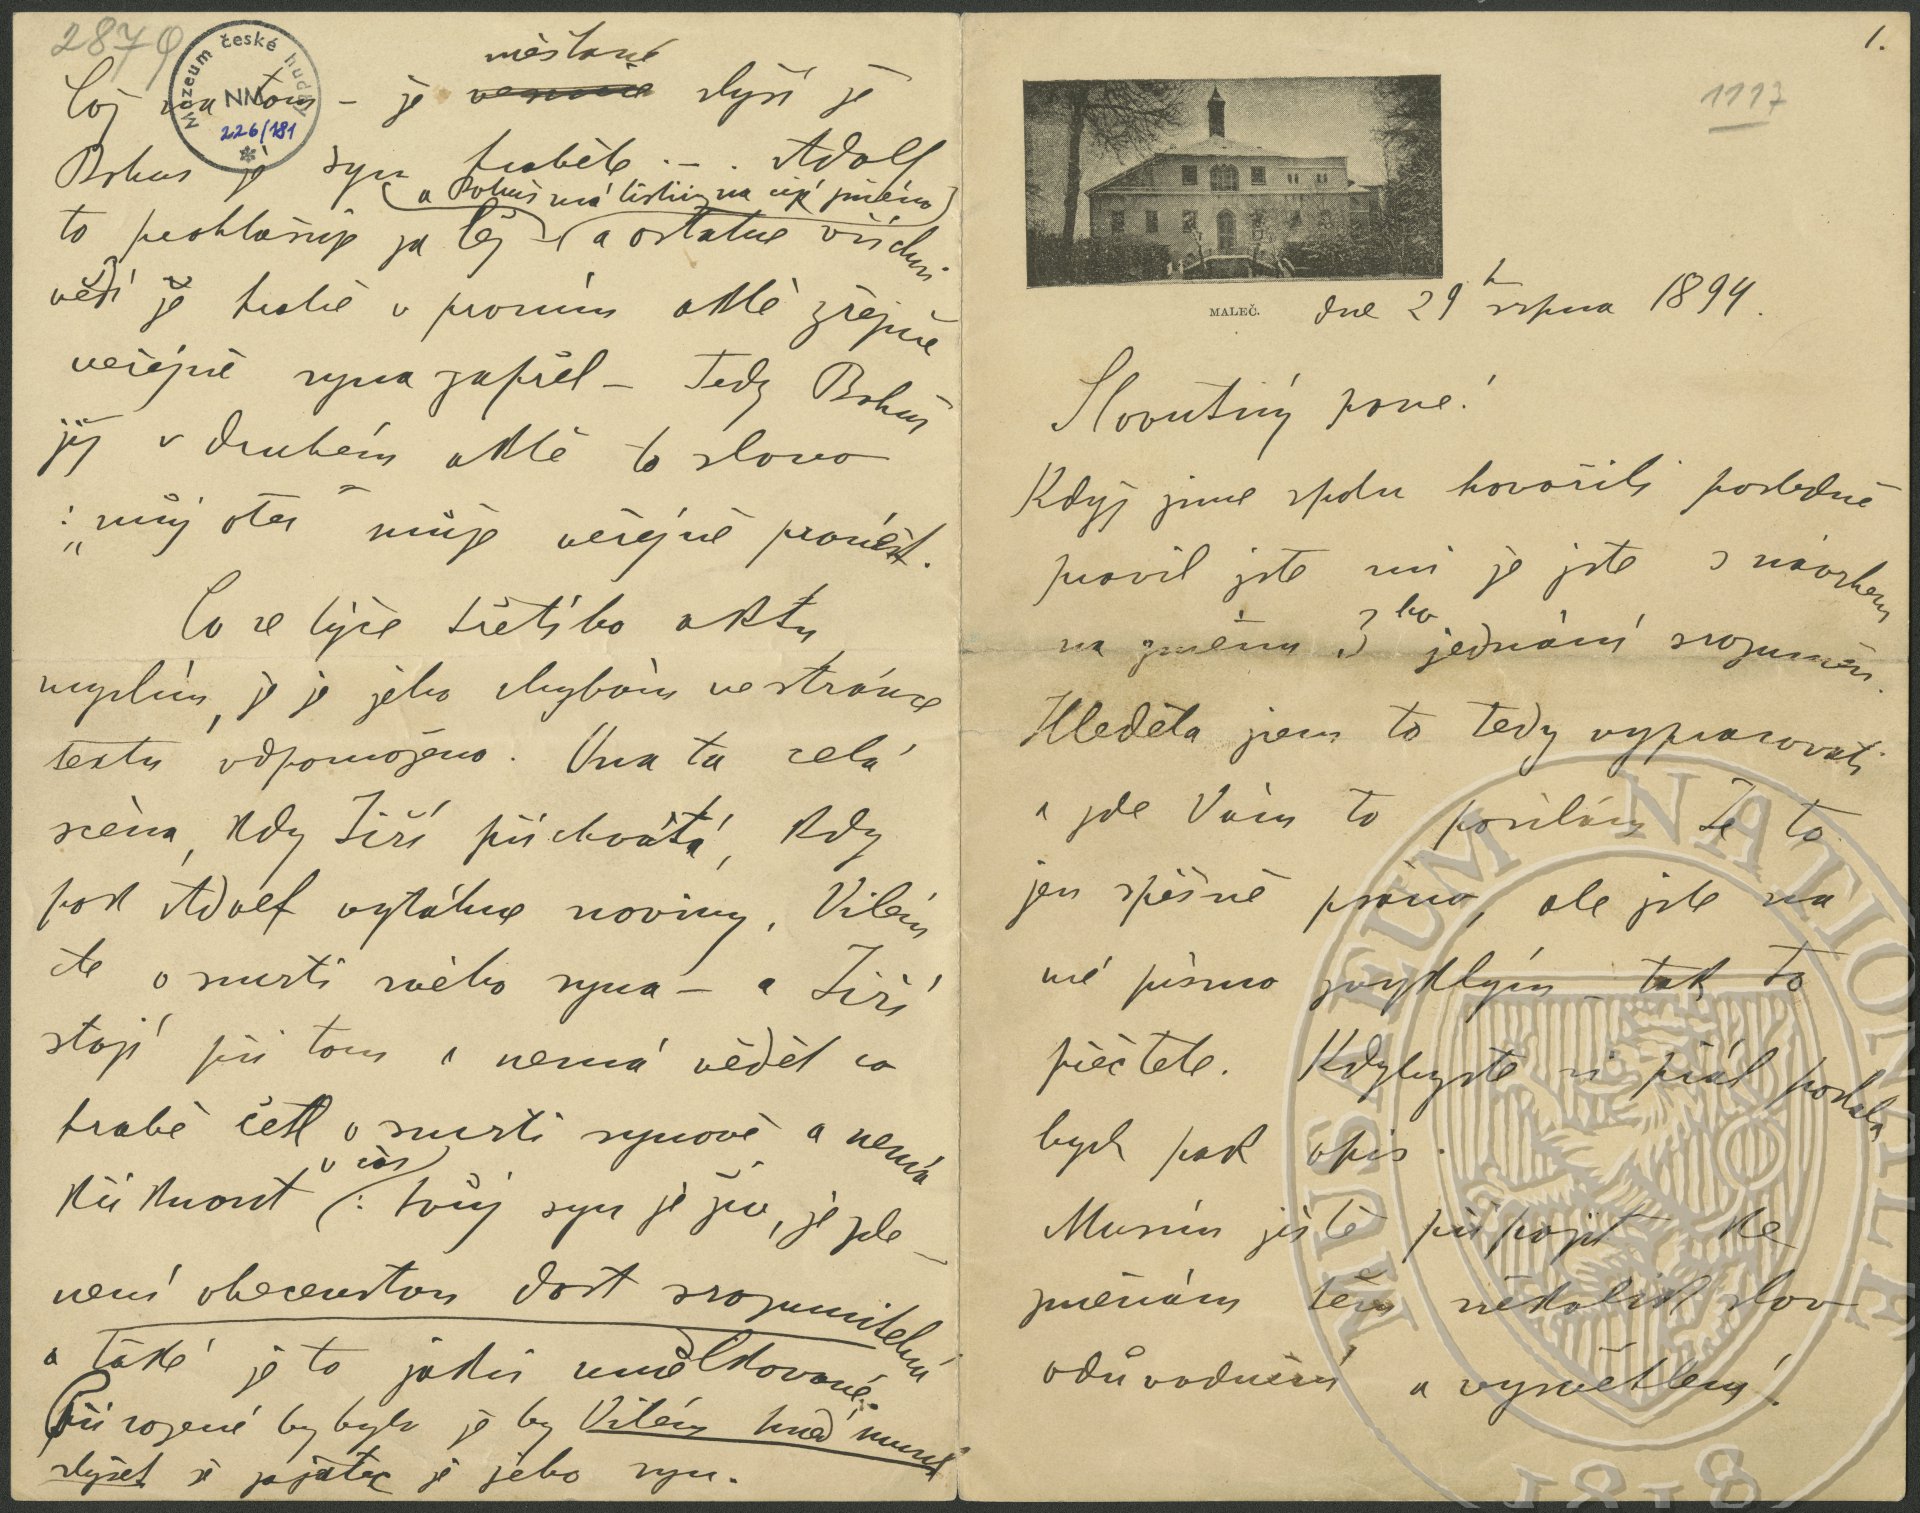 1.
1117
MALEČ.
dne 29 srpna 1894.
Slovutný pane!
Když jsme spolu hovořili posledně
pravil jste mi že jste s návrhem
na změnu 3ho jednání srozuměn.
Hleděla jsem to tedy vypracovati
a zde Vám to posílám Je to
jen spěšně psáno, ale jste na
mé písmo zvyklým – tak to
přečtete. Kdybyste si přál podala
bych pak opis.
Musím ještě připojit ke
změnám těm několik slov
odůvodnění a vysvětlení.
2879
Muzeum české hudby
NM
226/181
Což na tom – že měšťané slyší že
Bohuš je syn hraběte –. Adolf
(a Bohuš má listiny na cizí jméno)
to prohlašuje za lež – (a ostatně všichni
vědí že hrabě v prvním aktě zřejmě
veřejně syna zapřel – Tedy Bohuš
již v druhém aktě to slovo
: „můj otec" může veřejně pronést.
Co se týče třetího aktu
myslím, že je jeho chybám ve stránce
textu odpomoženo. Ona ta celá
scéna, kdy Jiří přichvátá, kdy
pak Adolf vytáhne noviny, Vilém
čte o smrti svého syna – a Jiří
stojí při tom a nemá vědět co
hrabě četl o smrti synově a nemá
křiknout v čas (: tvůj syn je živ, je zde –
není obecenstvu dost srozumitelná
a také je to jaksi umělkované.
Přirozené by bylo že by Vilém hned musel
slyšet že zajatec je jeho syn.
MUSEUM NATIONALE
1818